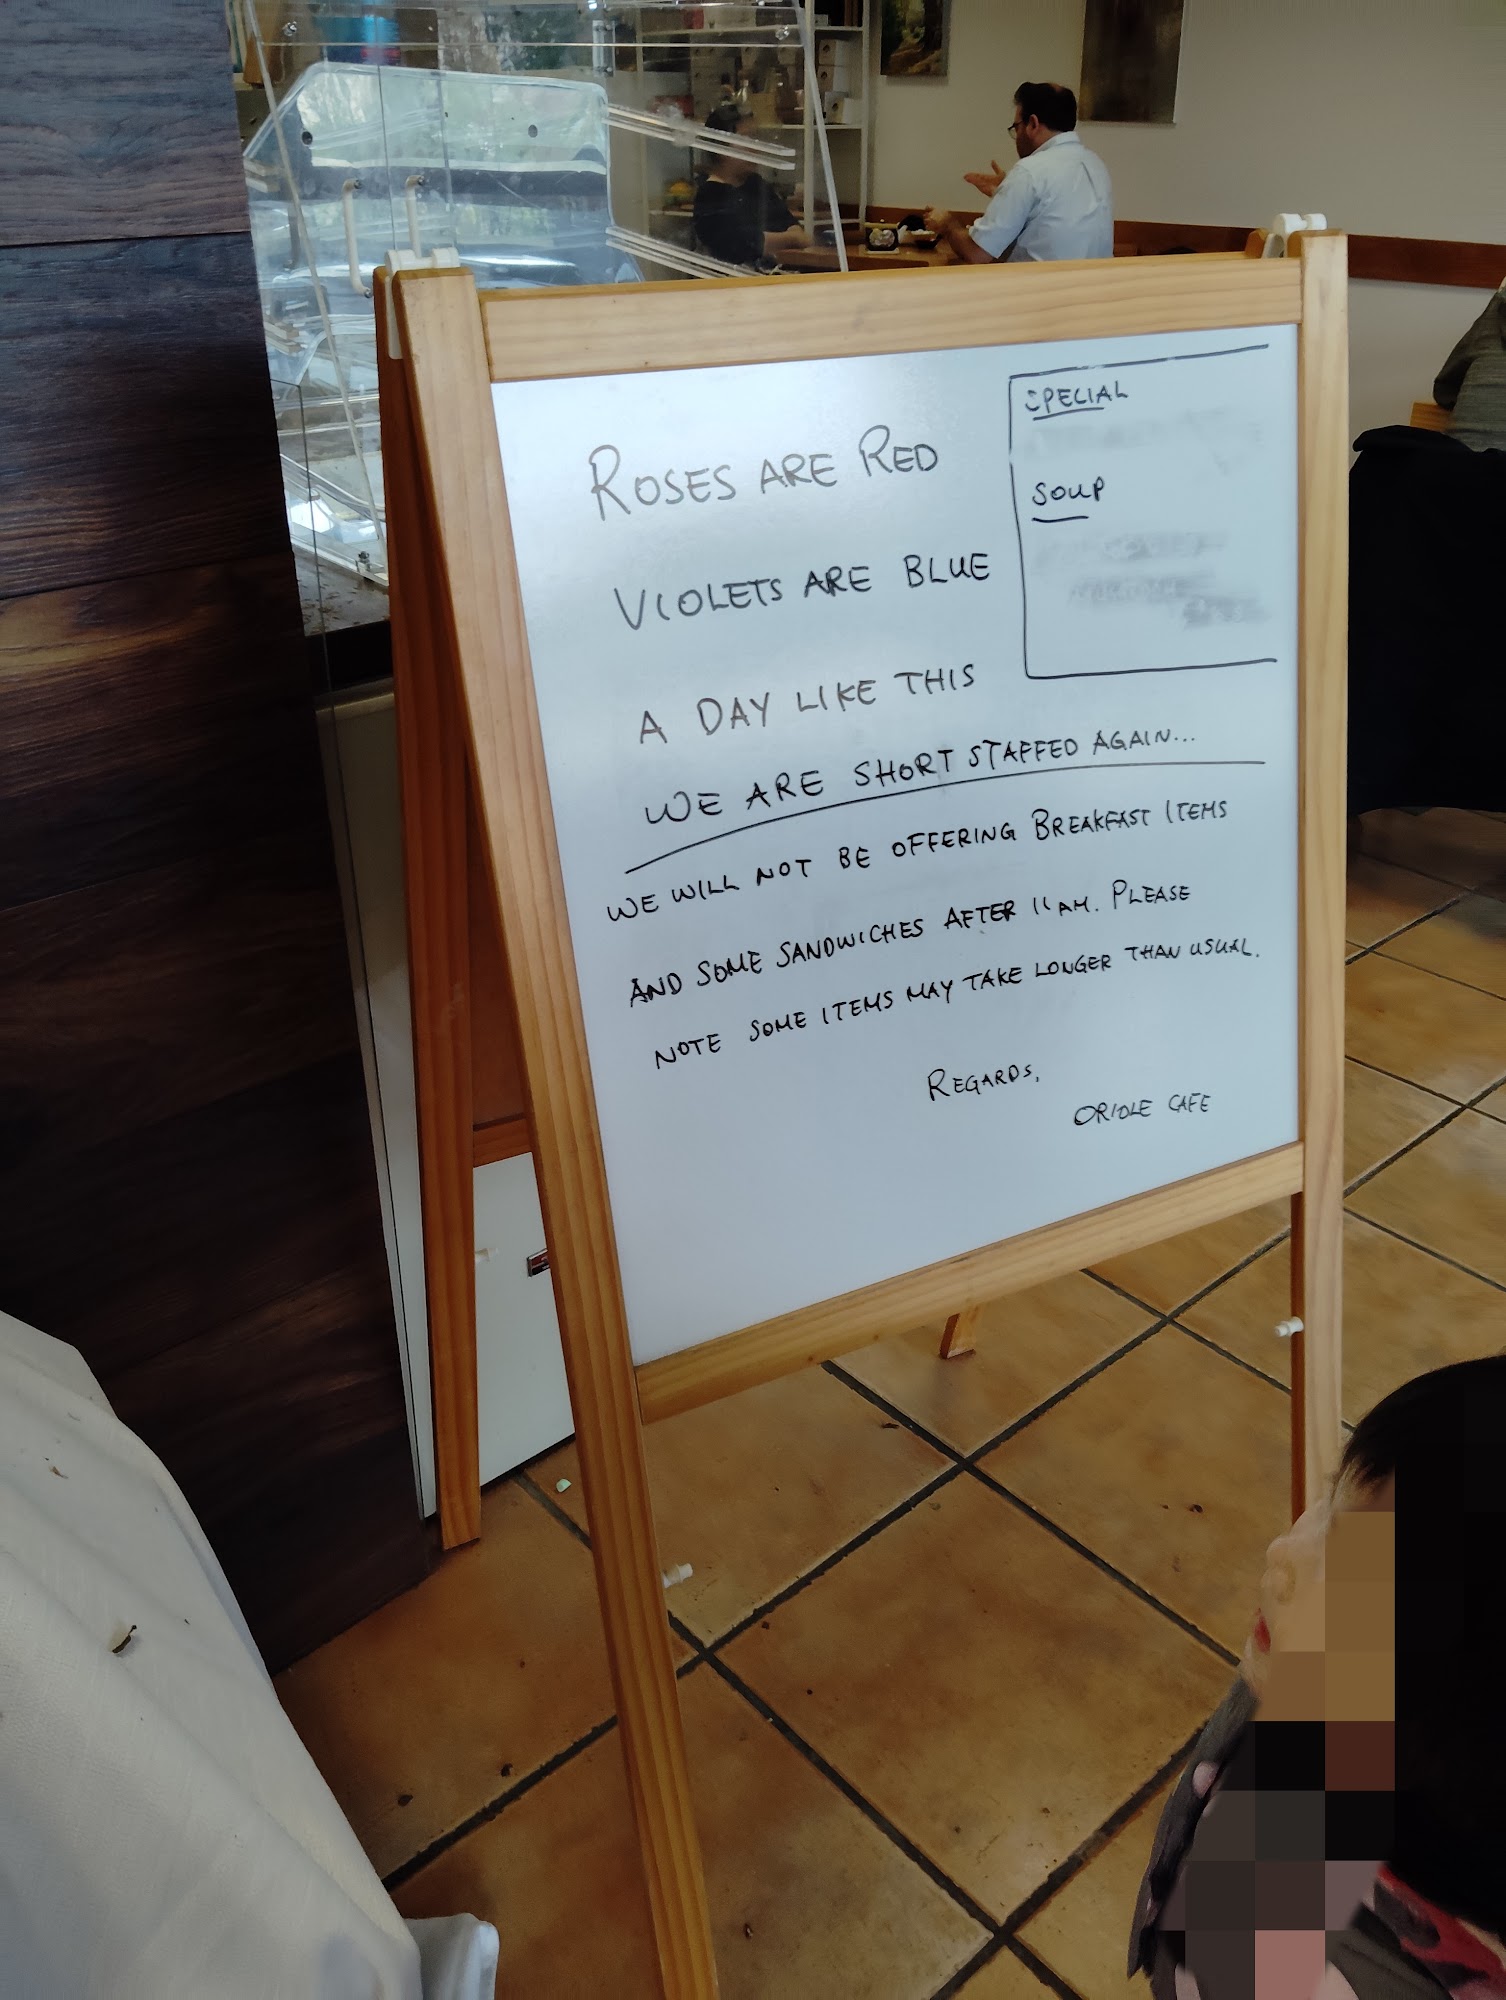 ROSES ARE RED
VIOLETS ARE BLUE
A DAY LIKE THIS
WE ARE SHORT STAFFED AGAIN...
WE WILL NOT BE OFFERING BREAKFAST ITEMS
AND SOME SANDWICHES AFTER 11 AM. PLEASE
NOTE SOME ITEMS MAY TAKE LONGER THAN USUAL.
REGARDS,
ORIOLE CAFE
SPECIAL
SOUP